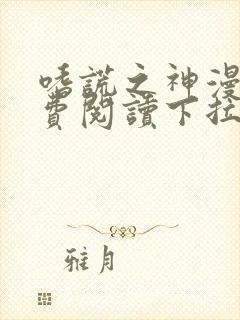 嗜謊之神漫
費閱讀下拉
雅月